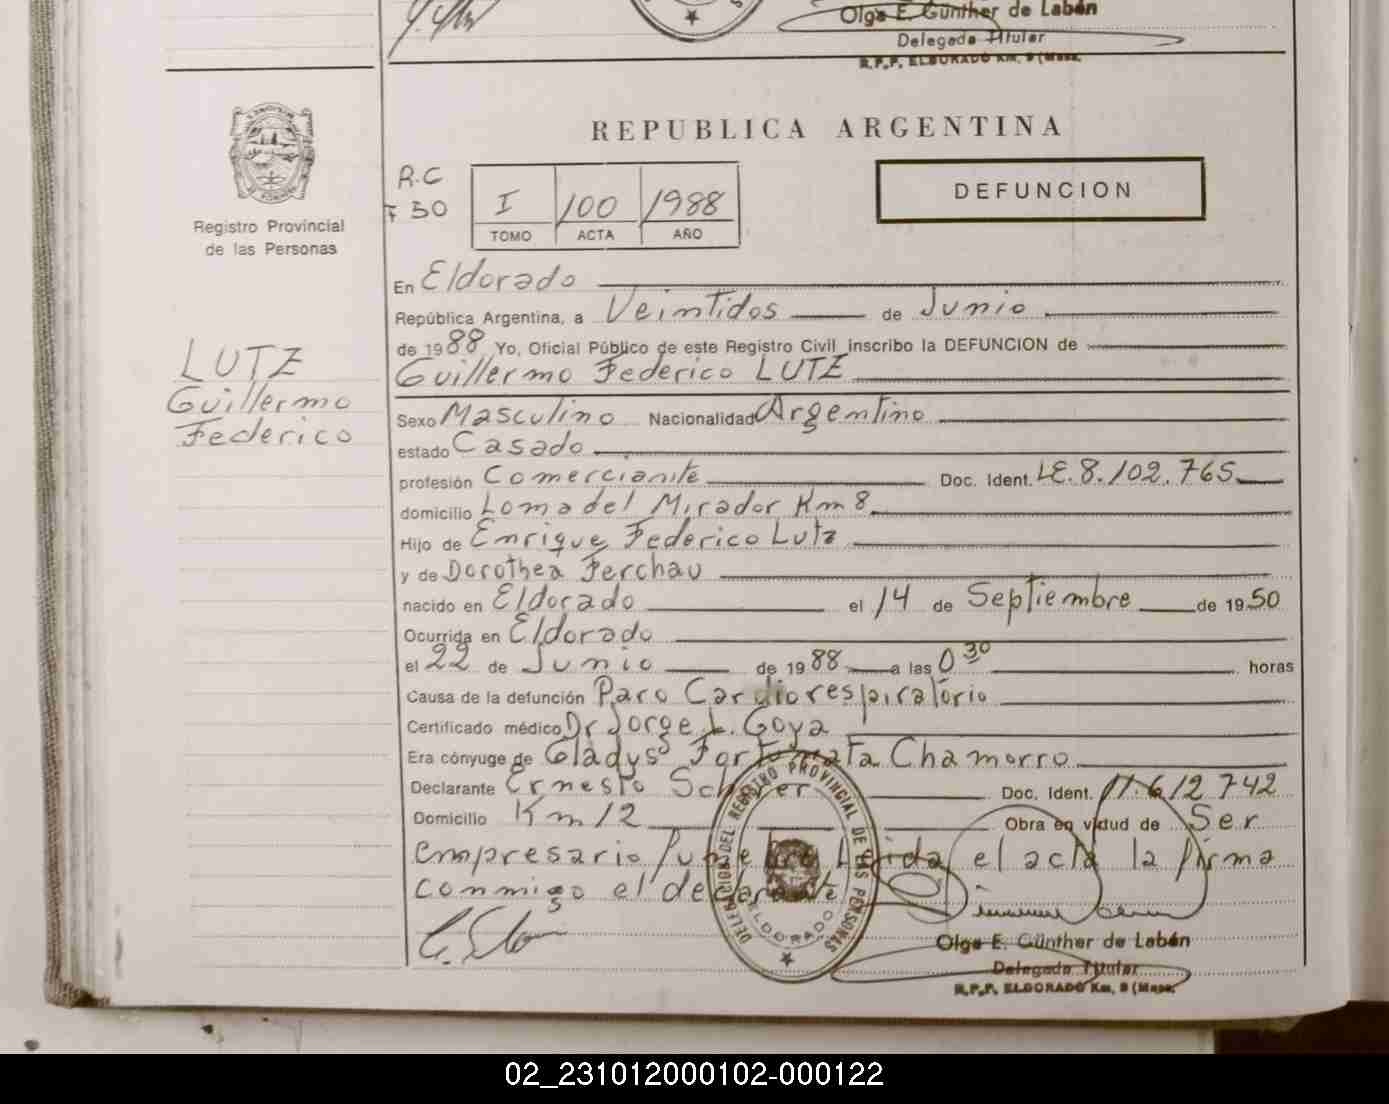 Olga E. Günther de Labán
Delegada Titular
R.P.P. ELDORADO Km. 9 (Mnes.
REPUBLICA ARGENTINA
R.C
F 50
I 100 1988
TOMO ACTA AÑO
DEFUNCION
Registro Provincial
de las Personas
LUTZ
Guillermo
Federico
En Eldorado
República Argentina, a Veintidos de Junio
de 1988 Yo, Oficial Público de este Registro Civil inscribo la DEFUNCION de
Guillermo Federico LUTZ
Sexo Masculino Nacionalidad Argentino
estado Casado
profesión Comerciante Doc. Ident. LE. 8.102.765
domicilio Loma del Mirador Km 8
Hijo de Enrique Federico Lutz
y de Dorothea Ferchau
nacido en Eldorado el 14 de Septiembre de 1950
Ocurrida en Eldorado
el 22 de Junio de 1988 a las 0 30 horas
Causa de la defunción Paro Cardiorespiratorio
Certificado médico Dr Jorge L. Goya
Era cónyuge de Gladys Fortunata Chamorro
Declarante Ernesto Doc. Ident. 11.612.742
Domicilio Km 12 Obra en virtud de Ser
empresario funebre Leida el acta la firma
conmigo el declarante
DELEGACION DEL REGISTRO PROVINCIAL DE LAS PERSONAS
ELDORADO
Olga E. Günther de Labán
Delegada Titular
R.P.P. ELDORADO Km. 9 (Mnes.
02_231012000102-000122